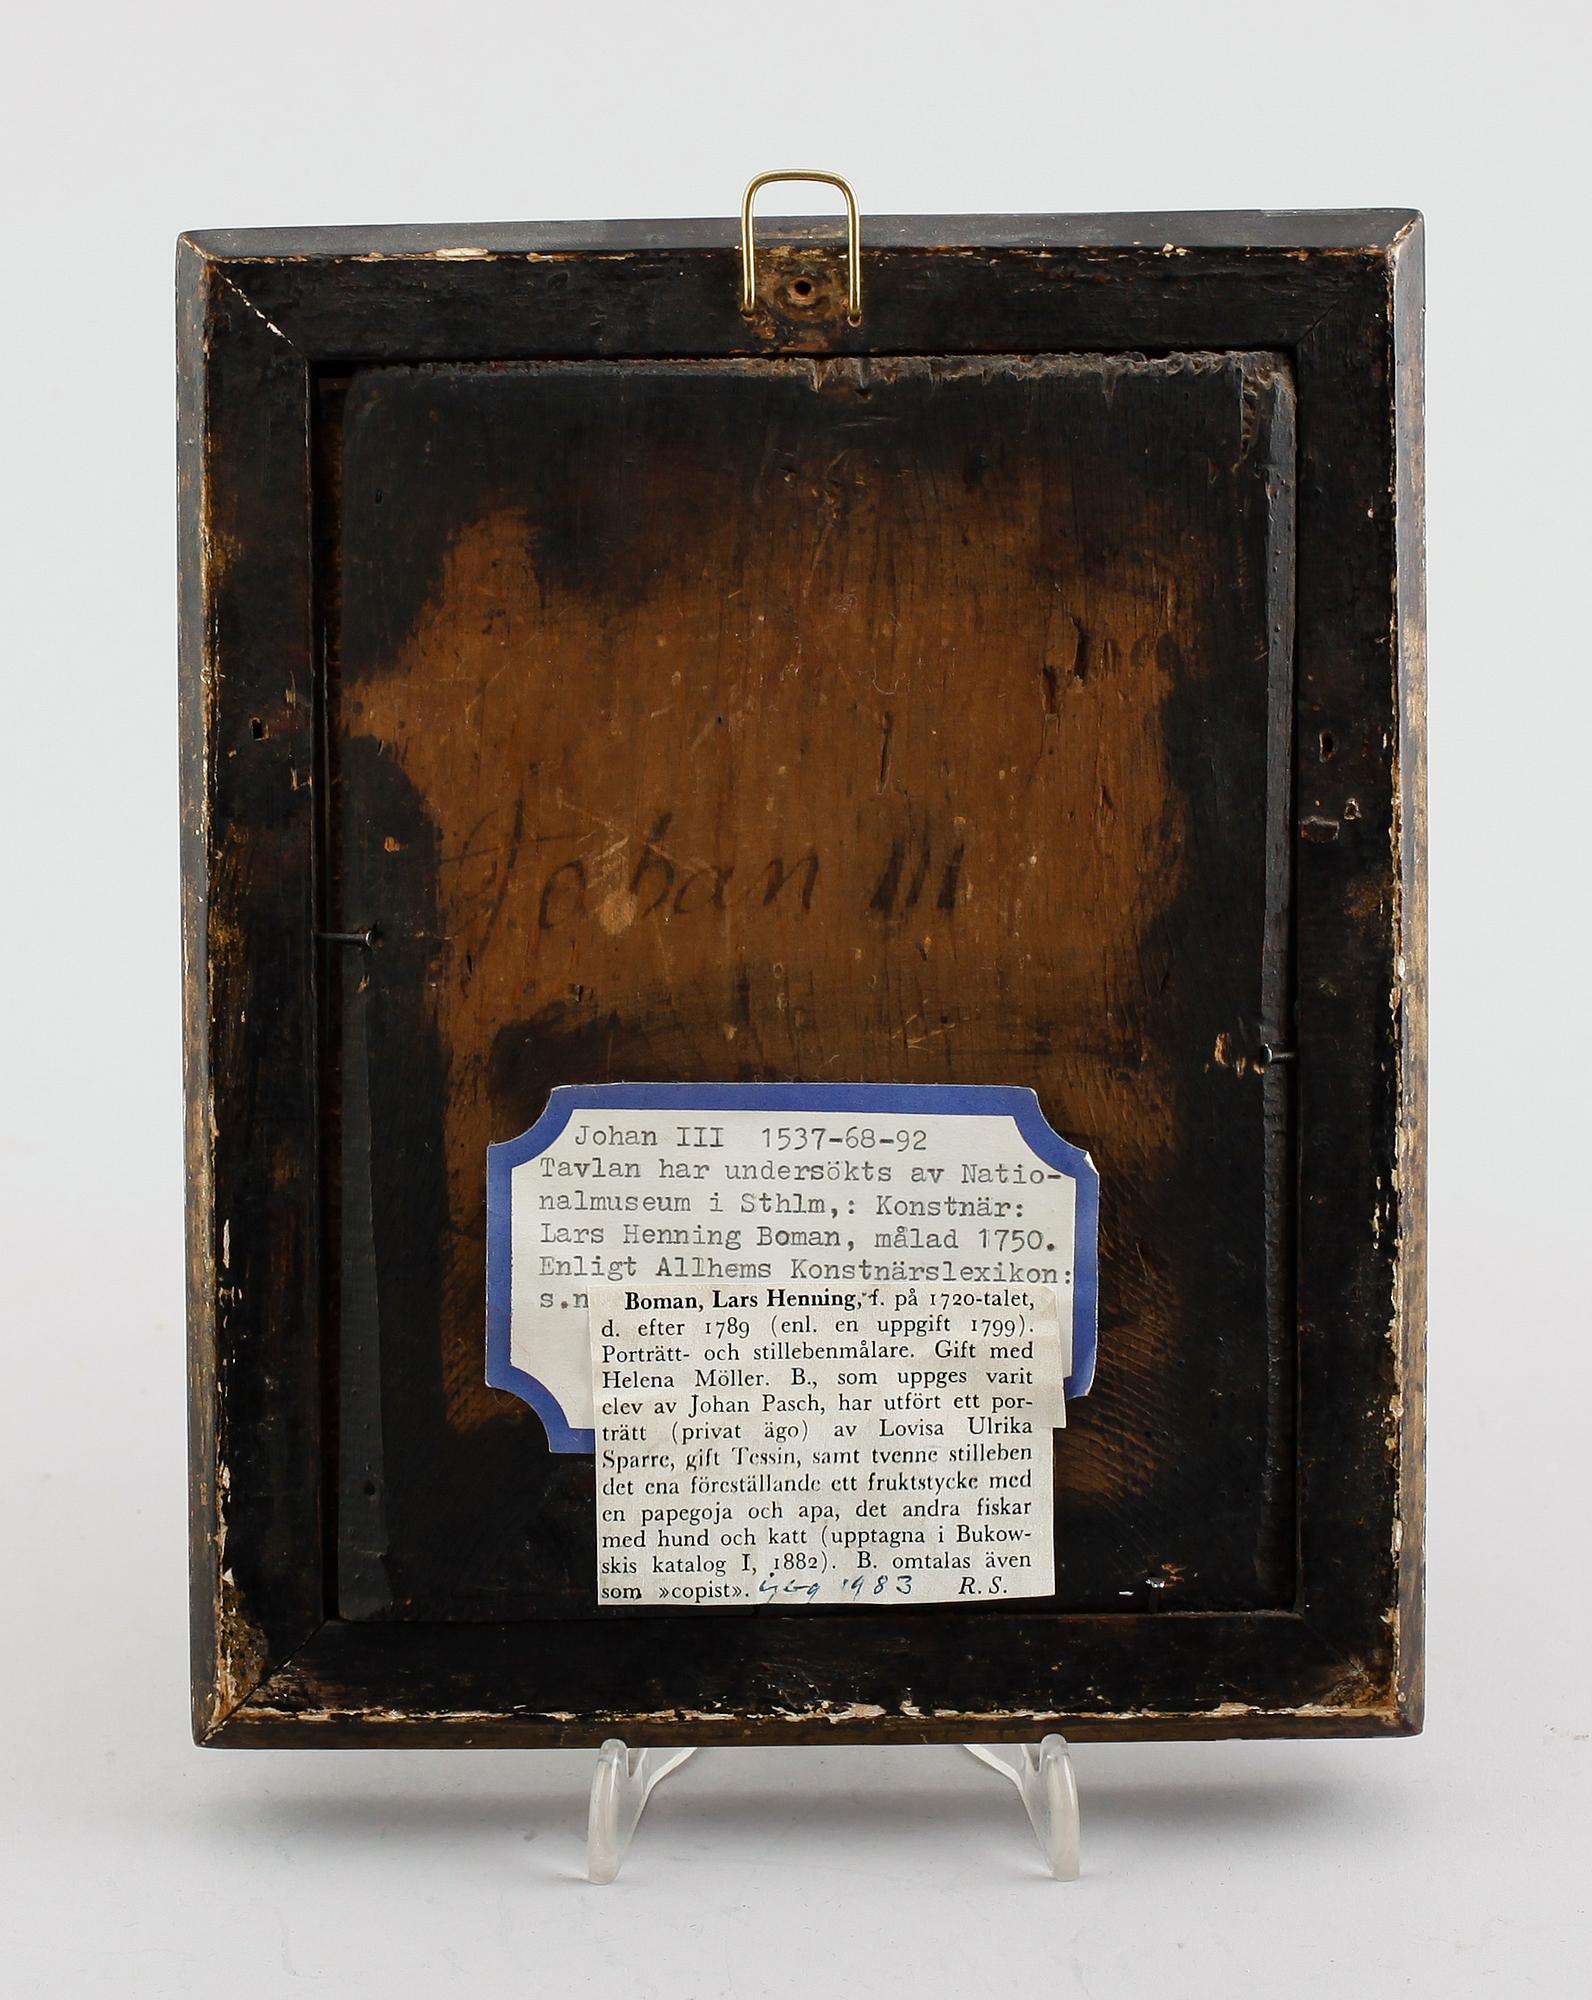 Johan III
Johan III 1537-68-92
Tavlan har undersökts av Natio-
nalmuseum i Sthlm,: Konstnär:
Lars Henning Boman, målad 1750.
Enligt Allhems Konstnärslexikon:
Boman, Lars Henning, f. på 1720-talet,
d. efter 1789 (enl. en uppgift 1799).
Porträtt- och stillebenmålare. Gift med
Helena Möller. B., som uppges varit
elev av Johan Pasch, har utfört ett por-
trätt (privat ägo) av Lovisa Ulrika
Sparre, gift Tessin, samt tvenne stilleben
det ena föreställande ett fruktstycke med
en papegoja och apa, det andra fiskar
med hund och katt (upptagna i Bukow-
skis katalog I, 1882). B. omtalas även
som »copist». 1983 R. S.